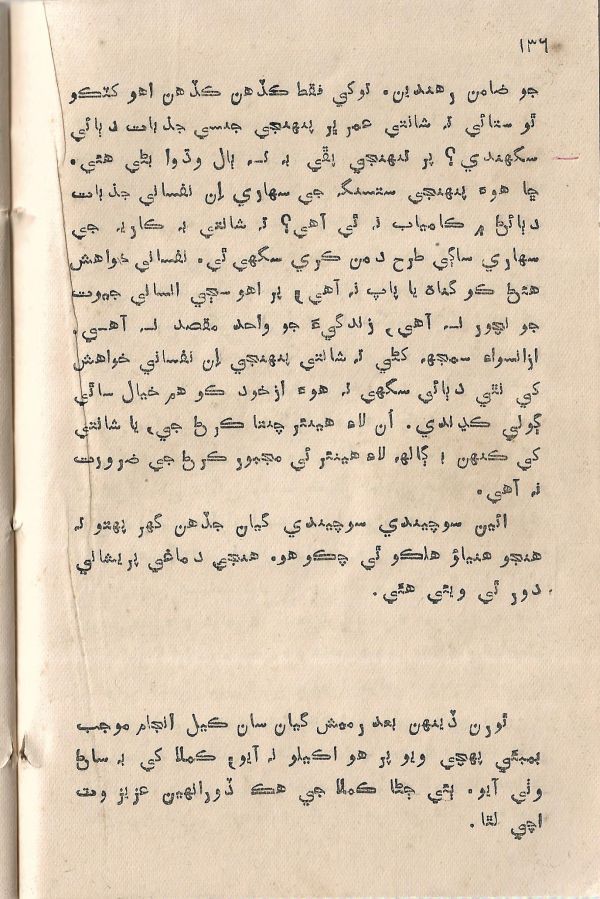 ١٣٦
جو ضامن رهندين. توکي فقط ڪڏهن ڪڏهن اهو کٽڪو
ٿو ستائي ته شانتي عمر ڀر پنهنجي جنسي جذبات دٻائي
سگهندي؟ پر تنهنجي ڀڦي به ته ٻال وڌوا ٻڻي هئي.
ڇا هوءَ پنهنجي ستسنگ جي سهاري اِن نفساني جذبات
دٻائڻ ۾ ڪامياب نه ٿي آهي؟ ته شانتي به ڪاريه جي
سهاري ساڳي طرح دمن ڪري سگهي ٿي. نفساني خواهش
هئڻ ڪو گناه يا پاپ نه آهي، پر اهو سڄي انساني جيوت
جو نچوڙ نه آهي، زندگيءَ جو واحد مقصد نه آهي.
ازانسواءِ سمجهه کڻي ته شانتي پنهنجي اِن نفساني خواهش
کي نٿي دٻائي سگهي ته هوءَ ازخود ڪو هم خيال ساٿي
ڳولي ڪڍندي. اُن لاءِ هينئر چنتا ڪرڻ جي، يا شانتي
کي ڪنهن ۽ ڳالهه لاءِ هينئر ئي مجبور ڪرڻ جي ضرورت
نه آهي.
ائين سوچيندي سوچيندي گيان جڏهن گهر پهتو ته
هنجو هنياؤ هلڪو ٿي چڪو هو. هنجي دماغي پريشاني
دور ٿي ويئي هئي.
ٿورن ڏينهن بعد رميش گيان سان ڪيل انجام موجب
بمبئي پهچي ويو پر هو اڪيلو نه آيو، ڪملا کي به ساڻ
وٺي آيو. ٻئي ڄڻا ڪملا جي هڪ ڏورانهين عزيز وٽ
اچي لٿا.